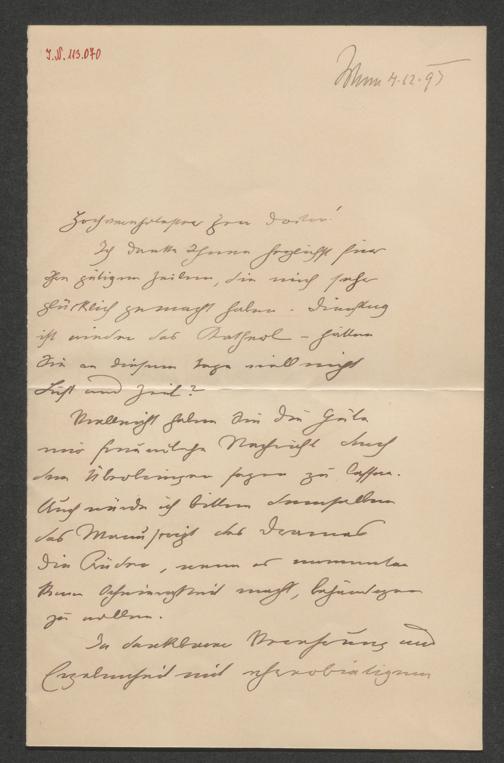 J.N. 113.070
Wien 4.12.95
Hochverehrtester Herr Doctor!
Ich danke Ihnen herzlichst für
Ihre gütigen Zeilen, die mich sehr
glücklich gemacht haben. Dienstag
ist wieder das – hätten
Sie an diesem Tage viell nicht
Lust und Zeit?
Vielleicht haben Sie die Güte
mir freundliche Nachricht durch
den Überbringer sagen zu lassen.
Auch würde ich bitten demselben
das Manuscript des Dramas
Die , wenn es momentan
keine Schwierigkeit macht, behändigen
zu wollen.
In dankbarer Verehrung und
Ergebenheit mit